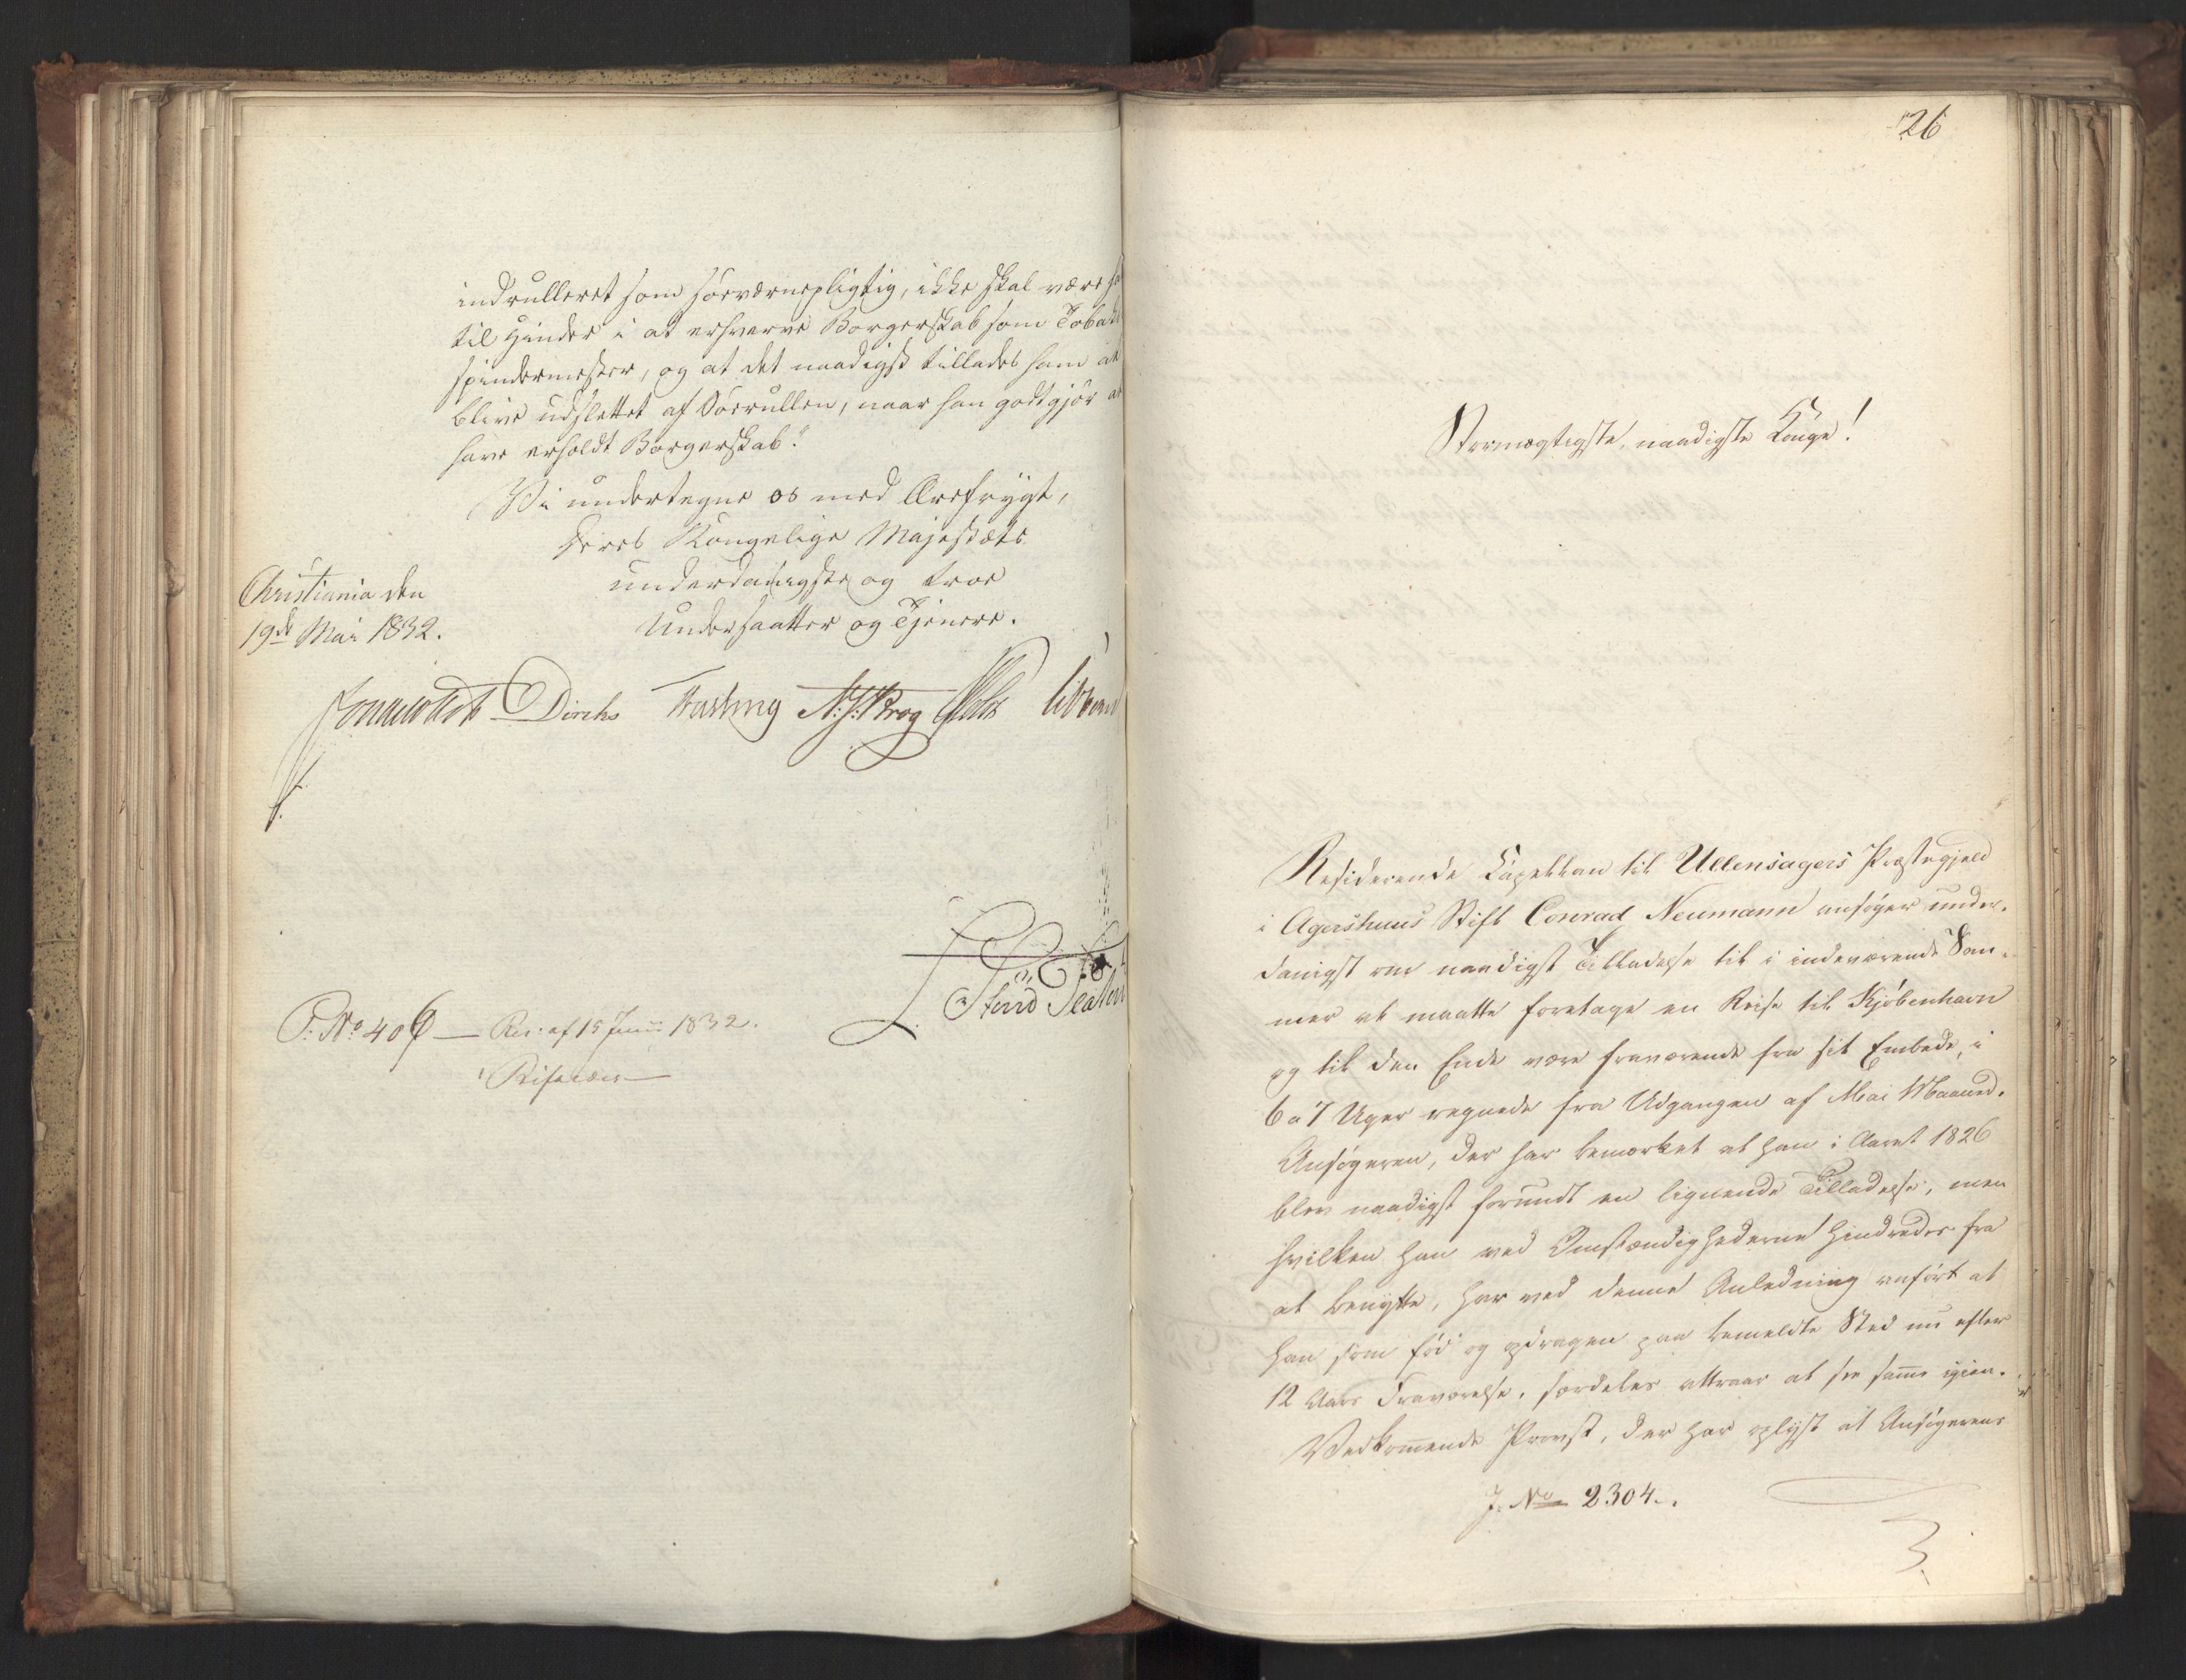 indrulleret som søeværnepligtig, ikke skal være ham
til Hinder i at erhverve Borgerskab som Tobaks
spindermester, og at det naadigst tillades ham at
blive udslettet af Søerullen, naar han godtgjør at
have erholdt Borgerskab."
Vi undertegne os med Ærefrygt,
Deres Kongelige Majestæts
underdanigste og troe
Undersaatter og Tjenere.
Christiania den
19de Mai 1832.
Diriks Fasting N. J. Krog
P: No 406 — Res: af 15 Junii 1832.
26
Stormægtigste, naadigste Konge!
Residerende Kapellan til Ullensagers Præstegjeld
i Agershuus Stift Conrad Neumann ansøger under-
danigst om naadigst Tilladelse til i indeværende Som-
mer at maatte foretage en Reise til Kjøbenhavn
og til den Ende være fraværende fra sit Embede, i
6 a 7 Uger regnede fra Udgangen af Mai Maaned.
Ansøgeren, der har bemærket at han i Aaret 1826
blev naadigst forundt en lignende Tilladelse, men
hvilken han ved Omstændighederne hindredes fra
at benytte, har ved denne Anledning anført at
han som fød og opdragen paa bemeldte Sted nu efter
12 Aars Fraværelse, særdeles attraaer at see samme igien.
Vedkommende Provst, der har oplyst at Ansøgerens
J. No 2304.